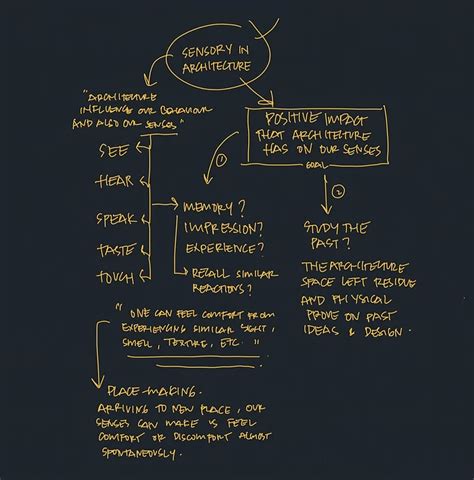 SENSORY IN
ARCHITECTURE
"ARCHITECTURE
INFLUENCE OUR BEHAVIOUR
AND ALSO OUR SENSES"
SEE
HEAR
SPEAK
TASTE
TOUCH
POSITIVE IMPACT
THAT ARCHITECTURE
HAS ON OUR SENSES
GOAL
1
MEMORY?
IMPRESSION?
EXPERIENCE?
RECALL SIMILAR
REACTIONS?
2
STUDY THE
PAST?
THE ARCHITECTURE
SPACE LEFT RESIDUE
AND PHYSICAL
PROVE ON PAST
IDEAS & DESIGN.
"ONE CAN FEEL COMFORT FROM
EXPERIENCING SIMILAR SIGHT,
SMELL, TEXTURE, ETC."
PLACE-MAKING.
ARRIVING TO NEW PLACE, OUR
SENSES CAN MAKE US FEEL
COMFORT OR DISCOMFORT ALMOST
SPONTANEOUSLY.